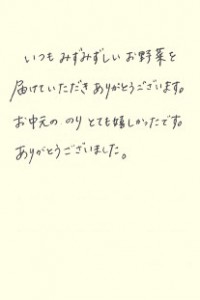 いつも みずみずしい お野菜を
届けていただき ありがとうございます。
お中元の のり とても嬉しかったです。
ありがとうございました。